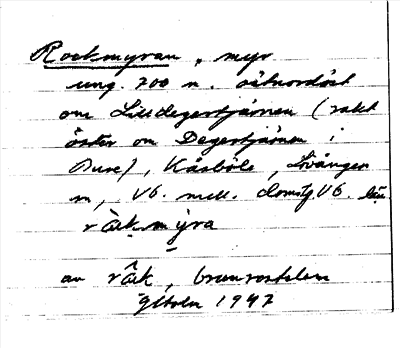 Rockmyran, myr
ung. 700 m. ostnordöst
om Lilldegertjärnen (rakt
öster om Degertjärnen i
Bure), Kåsböle, Lövånger
sn, Vb. mell. domstg Vb. län.
räkmýra
av räk,
Götbln 1947